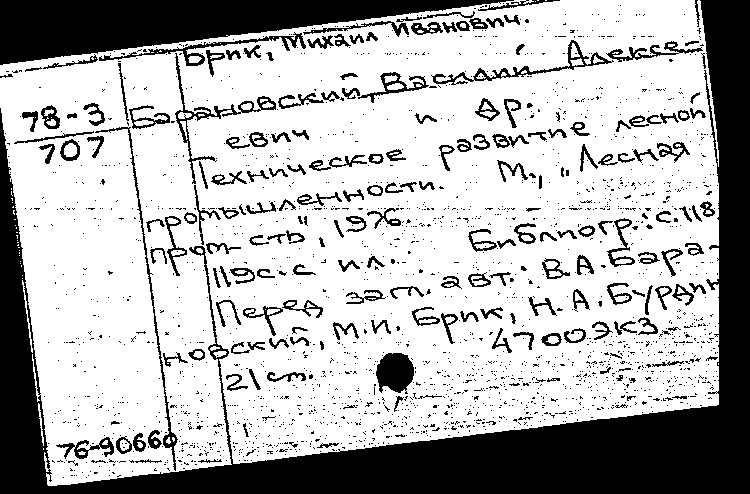 Брик, Михаил Иванович.
78-3
707
Барановский, Василий Алексе-
евич и др.
Техническое развитие лесной
промышленности. М., „Лесная
пром-сть", 1976.
119с. с ил. Библиогр.: с. 118
Перед загл. авт.: В.А. Бара-
новский, М.И. Брик, Н.А. Бурдин
21 см. 47009КЗ
76-90660